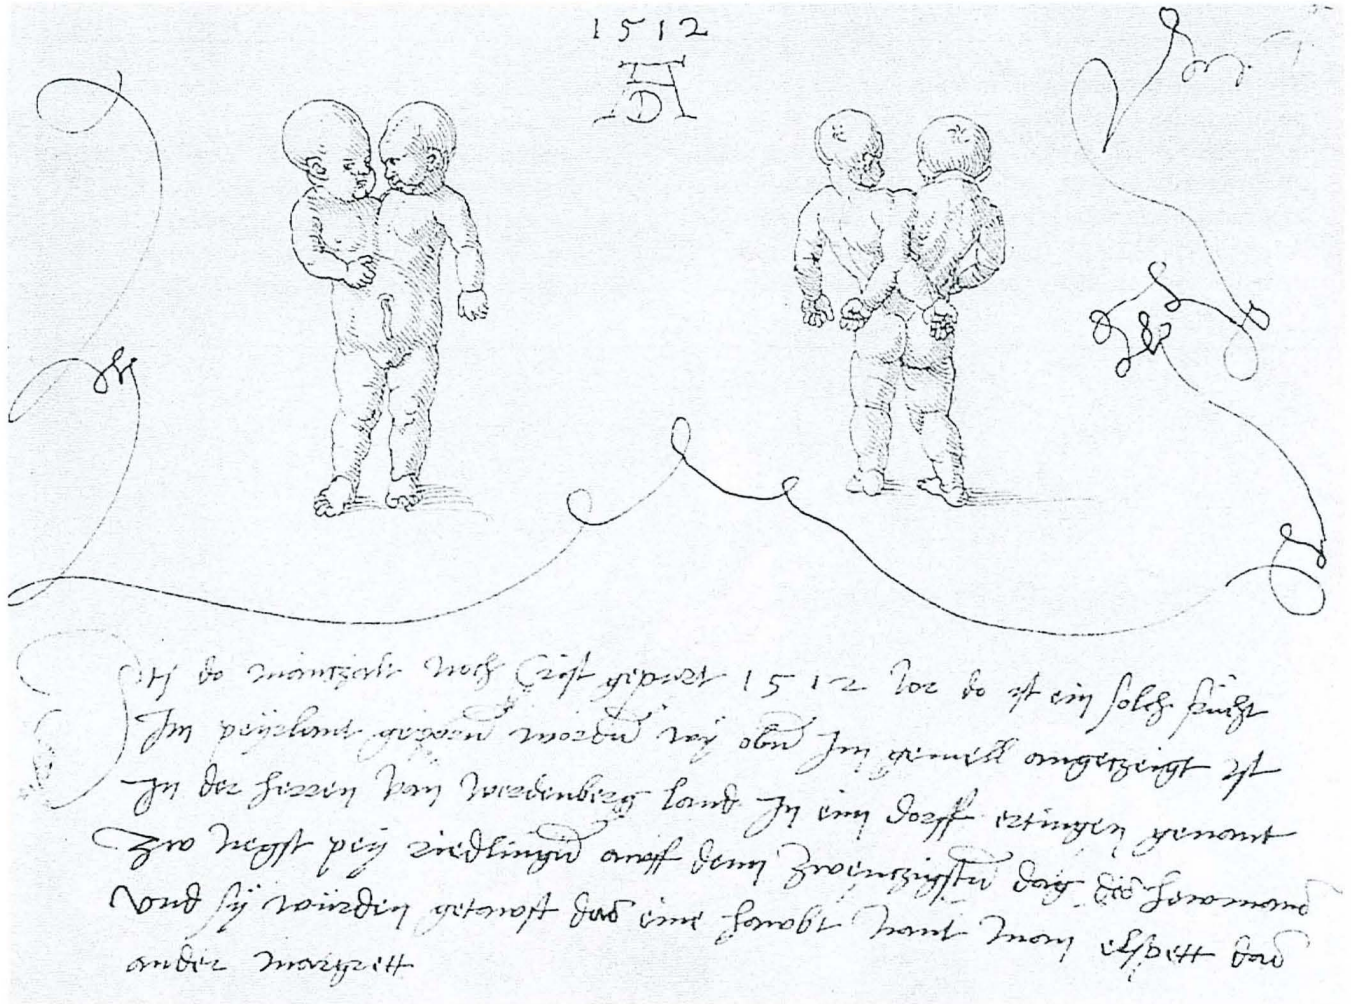 1512
AD
Itm do man tzalt noch Crist gepurt 1512 Jor do ist ein solch frucht
Im peyrlant geporn worden wy obn Im gemell angetzeigt ist
In der herren van werdenberg land In eim dorff ertingen genant
zw negst pey riedlingen awff denn zwentzigsten dag des hewmonds
vnd sy würden getawft das eine hawbt nant man elspett das
ander margrett